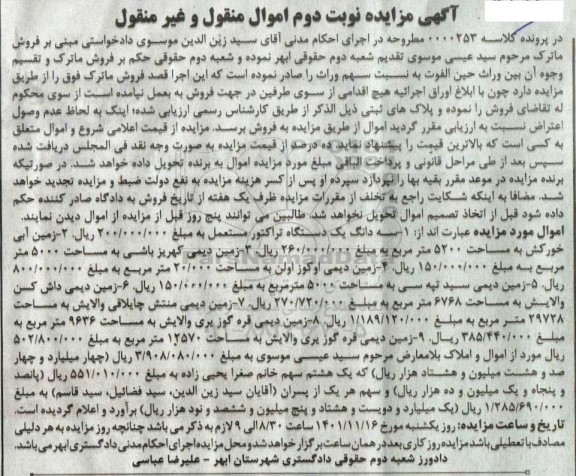 آگهی مزایده نوبت دوم اموال منقول و غیر منقول
در پرونده کلاسه ۰۰۰۰۲۵۳ مطروحه در اجرای احکام مدنی آقای سید زین الدین موسوی دادخواستی مبنی بر فروش
ماترک مرحوم سید عیسی موسوی تقدیم شعبه دوم حقوقی ابهر نموده و شعبه دوم حقوقی حکم بر فروش ماترک و تقسیم
وجوه آن بین وراث حین الفوت به نسبت سهم وراث را صادر نموده است که این اجرا قصد فروش ماترک فوق را از طریق
مزایده دارد چون با ابلاغ اوراق اجرائیه هیچ اقدامی از سوی طرفین در جهت فروش به بعمل نیامده است از سوی محکوم
له تقاضای فروش را نموده و پلاک های ثبتی ذیل الذکر از طریق کارشناس رسمی ارزیابی شده؛ اینک به لحاظ عدم وصول
اعتراض نسبت به ارزیابی مقرر گردید اموال از طریق مزایده به فروش برسد. مزایده از قیمت اعلامی شروع و اموال متعلق
به کسی است که بالاترین قیمت را پیشنهاد نماید. ده درصد از قیمت مزایده به صورت وجه نقد فی المجلس دریافت شده
سپس بعد از طی مراحل قانونی و پرداخت الباقی مبلغ مورد مزایده اموال به برنده تحویل داده خواهد شد. در صورتیکه
برنده مزایده در موعد مقرر بقیه بها را نپردازد سپرده او پس از کسر هزینه مزایده به نفع دولت ضبط و مزایده تجدید خواهد
شد. مضافا به اینکه شکایت راجع به تخلف از مقررات مزایده ظرف یک هفته از تاریخ فروش به دادگاه صادر کننده حکم
داده شود قبل از اتخاذ تصمیم اموال تحویل نخواهد شد. طالبین می توانند پنج روز قبل از مزایده از اموال دیدن نمایند.
اموال مورد مزایده عبارت اند از: ۱-سه دانگ یک دستگاه تراکتور مستعمل به مبلغ ۲۰۰/۰۰۰/۰۰۰ ریال. ۲-زمین آبی
خورکش به مساحت ۵۲۰۰ متر مربع به مبلغ ۲۶۰/۰۰۰/۰۰۰ ریال. ۳-زمین دیمی کهریز باشی به مساحت ۵۰۰۰ متر
مربع به مبلغ ۱۵۰/۰۰۰/۰۰۰ ریال. ۴-زمین دیمی اوکوز اولن به مساحت ۲۰/۰۰۰ متر مربع به مبلغ ۸۰۰/۰۰۰/۰۰۰
ریال. ۵-زمین دیمی سید تپه سی به مساحت ۵۰۰۰ مترمربع به مبلغ ۱۵۰/۰۰۰/۰۰۰ ریال. ۶-زمین دیمی داش کسن
والایش به مساحت ۶۷۶۸ متر مربع به مبلغ ۲۷۰/۷۲۰/۰۰۰ ریال. ۷-زمین دیمی منتش چایلاقی والایش به مساحت
۲۹۷۲۸ متر مربع به مبلغ ۱/۱۸۹/۱۲۰/۰۰۰ ریال. ۸-زمین دیمی قره گوز یری والایش به مساحت ۹۶۳۶ متر مربع به
مبلغ ۳۸۵/۴۴۰/۰۰۰ ریال. ۹-زمین دیمی قره گوز یری والایش به مساحت ۱۲۵۷۰ متر مربع به مبلغ ۵۰۲/۸۰۰/۰۰۰
ریال مورد از اموال و املاک بلامعارض مرحوم سید عیسی موسوی به مبلغ ۳/۹۰۸/۰۸۰/۰۰۰ ریال (چهار میلیارد و چهار
صد و هشت میلیون و هشتاد هزار ریال) که یک هشتم سهم خانم صغرا یحیی زاده به مبلغ ۵۵۱/۰۱۰/۰۰۰ ریال (پانصد
و پنجاه و یک میلیون و ده هزار ریال) و سهم هر یک از پسران (آقایان سید زین الدین، سید فضائیل، سید قاسم) به مبلغ
۱/۲۸۵/۶۹۰/۰۰۰ ریال (یک میلیارد و دویست و هشتاد و پنج میلیون و ششصد و نود هزار ریال) برآورد و اعلام گردیده است.
تاریخ و ساعت مزایده: روز یکشنبه مورخ ۱۴۰۱/۱۱/۱۶ ساعت ۸/۳۰ الی ۹ لازم به ذکر می باشد چنانچه روز مزایده به هر دلیلی
مصادف با تعطیلی باشد مزایده روز کاری بعد در همان ساعت برگزار خواهد شد و محل مزایده اجرای احکام مدنی دادگستری ابهر می باشد.
دادورز شعبه دوم حقوقی دادگستری شهرستان ابهر - علیرضا عباسی